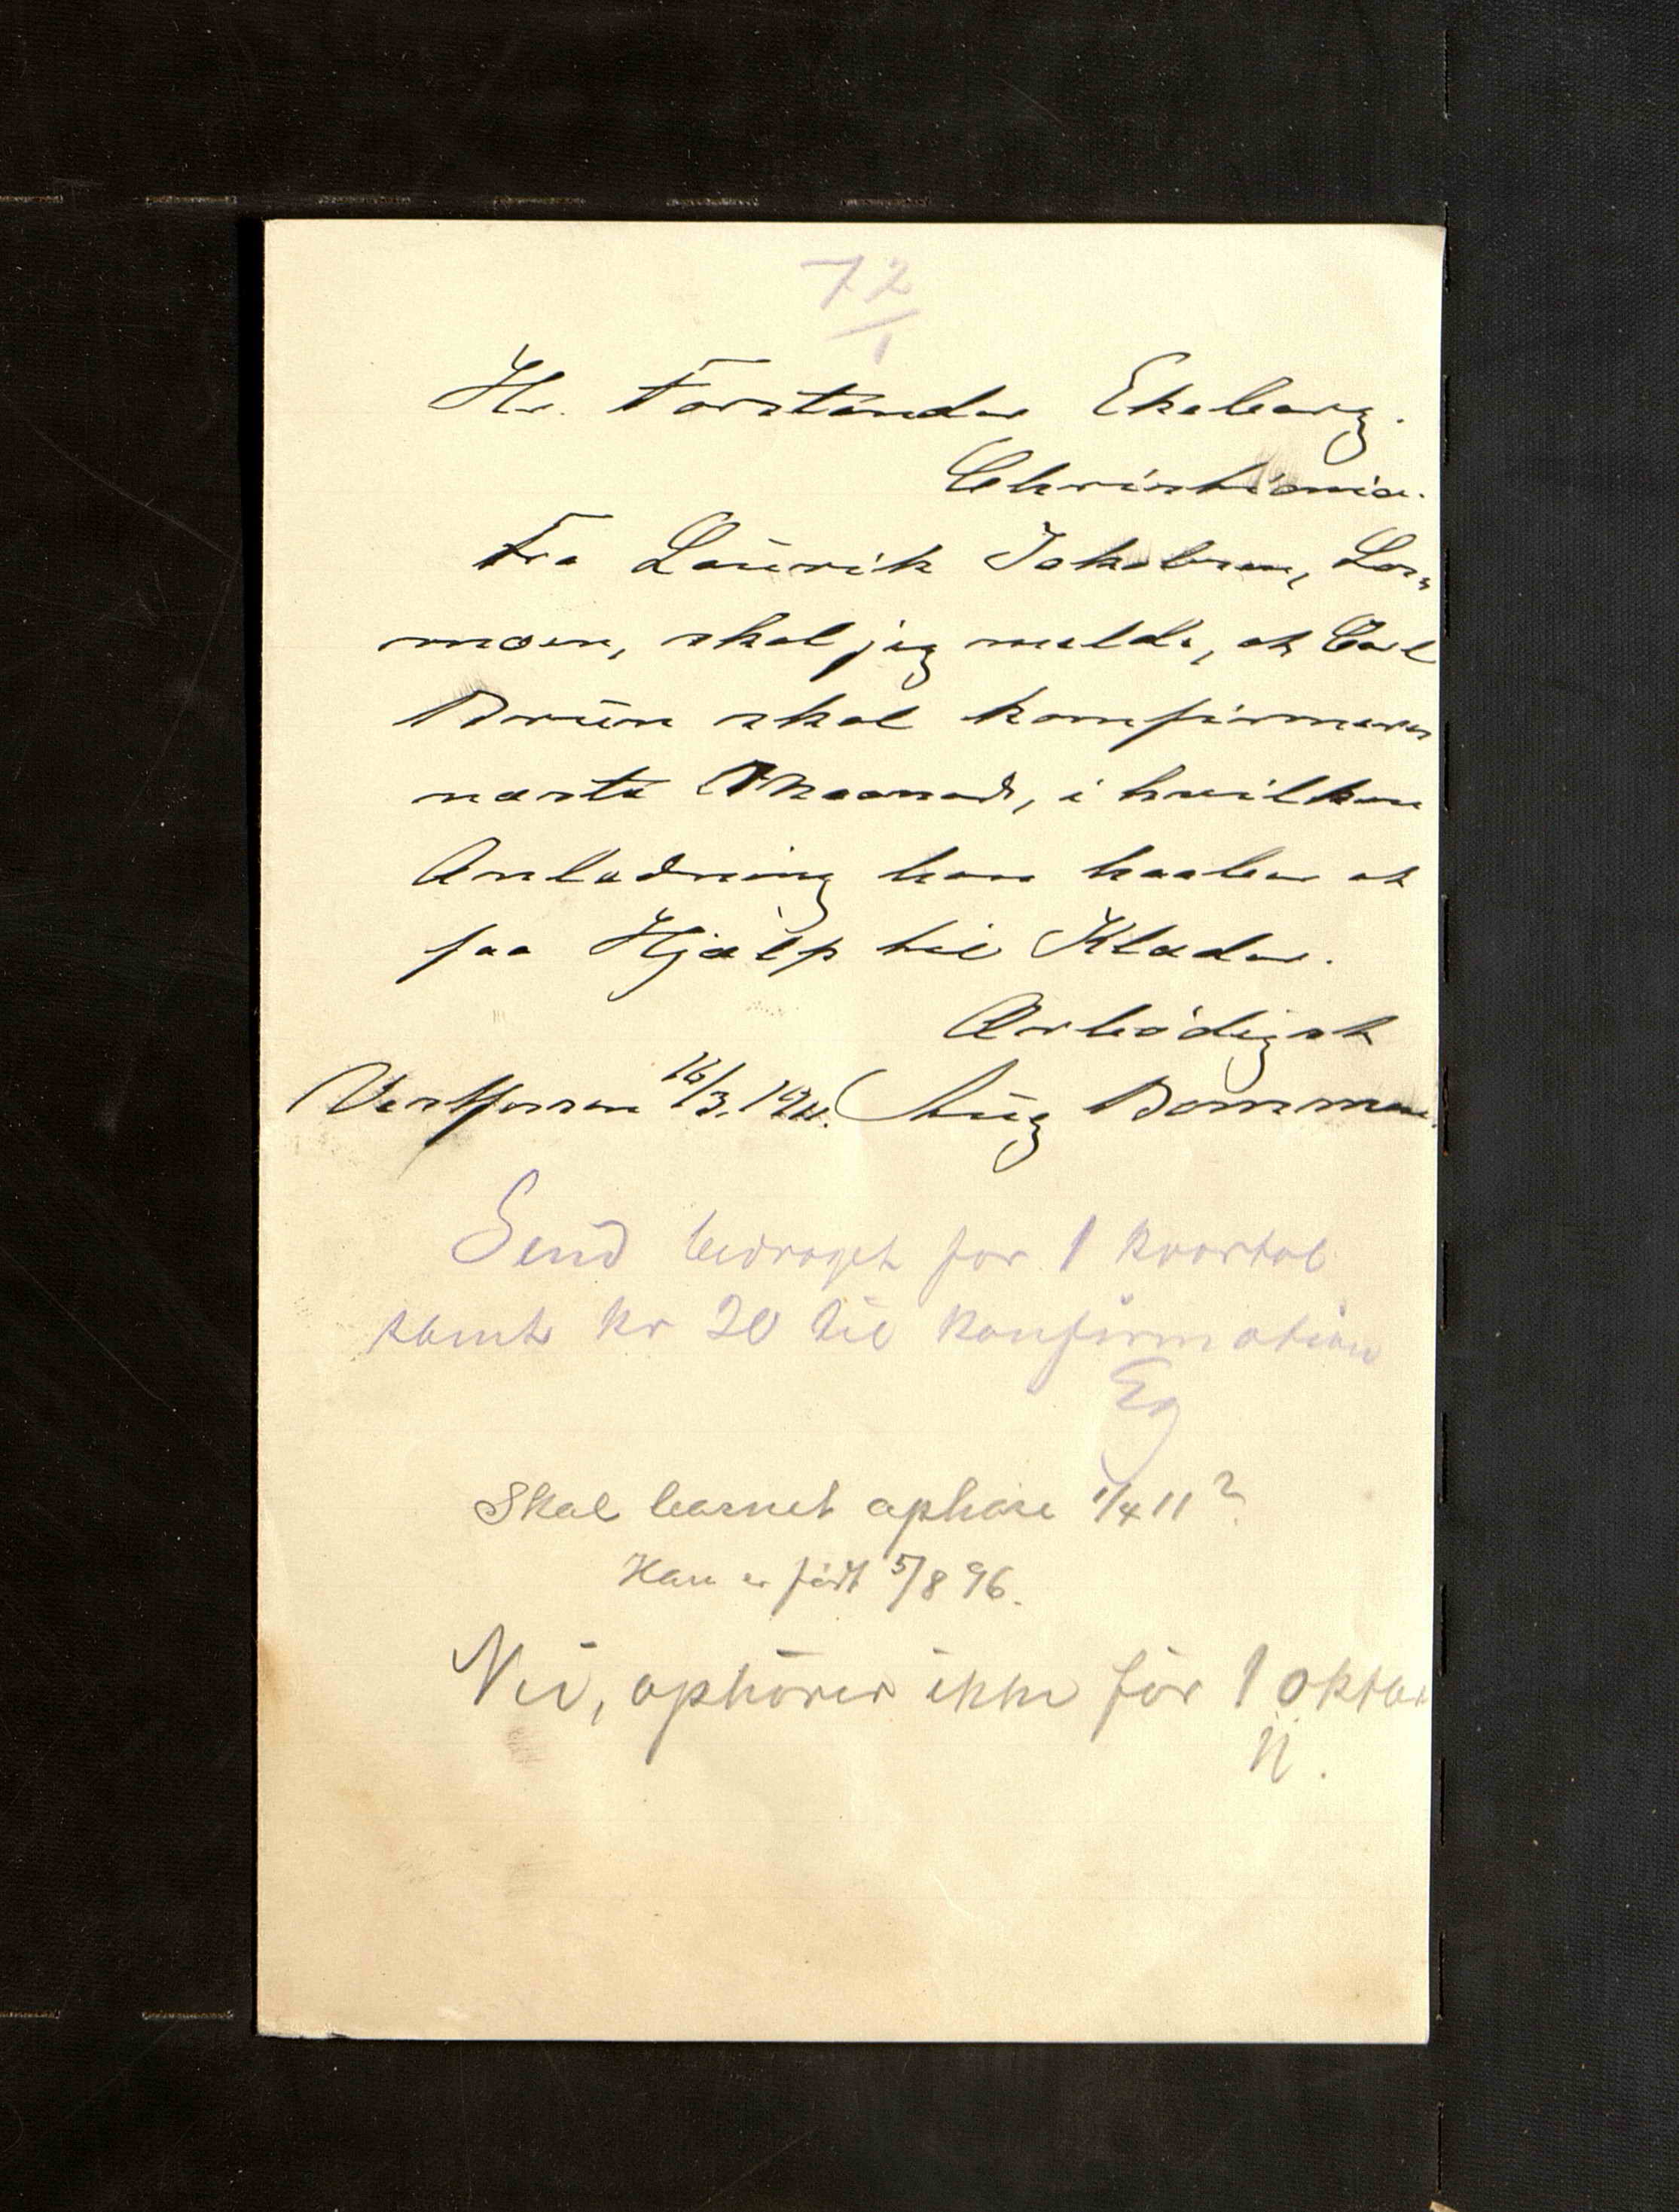 72
/1
Hr. Forstander Ekeberg.
Christiania.
Fra Laurik Jakobsen, Lor„
moen, skal jeg melde, at Carl
Bruun skal konfirmeres
næste Maaned, i hvilken
Anledning han haaber at
faa Hjælp til Klæder.
Ærbødigst
Vestfossen 16/3. 1911. Aug Bommen.
Send bidraget for 1 kvartal
samt kr 20 til konfirmation
Eg
Skal barnet ophøre 1/4 11?
Han er født 5/8 96.
Nei, ophører ikke før 1 oktbr